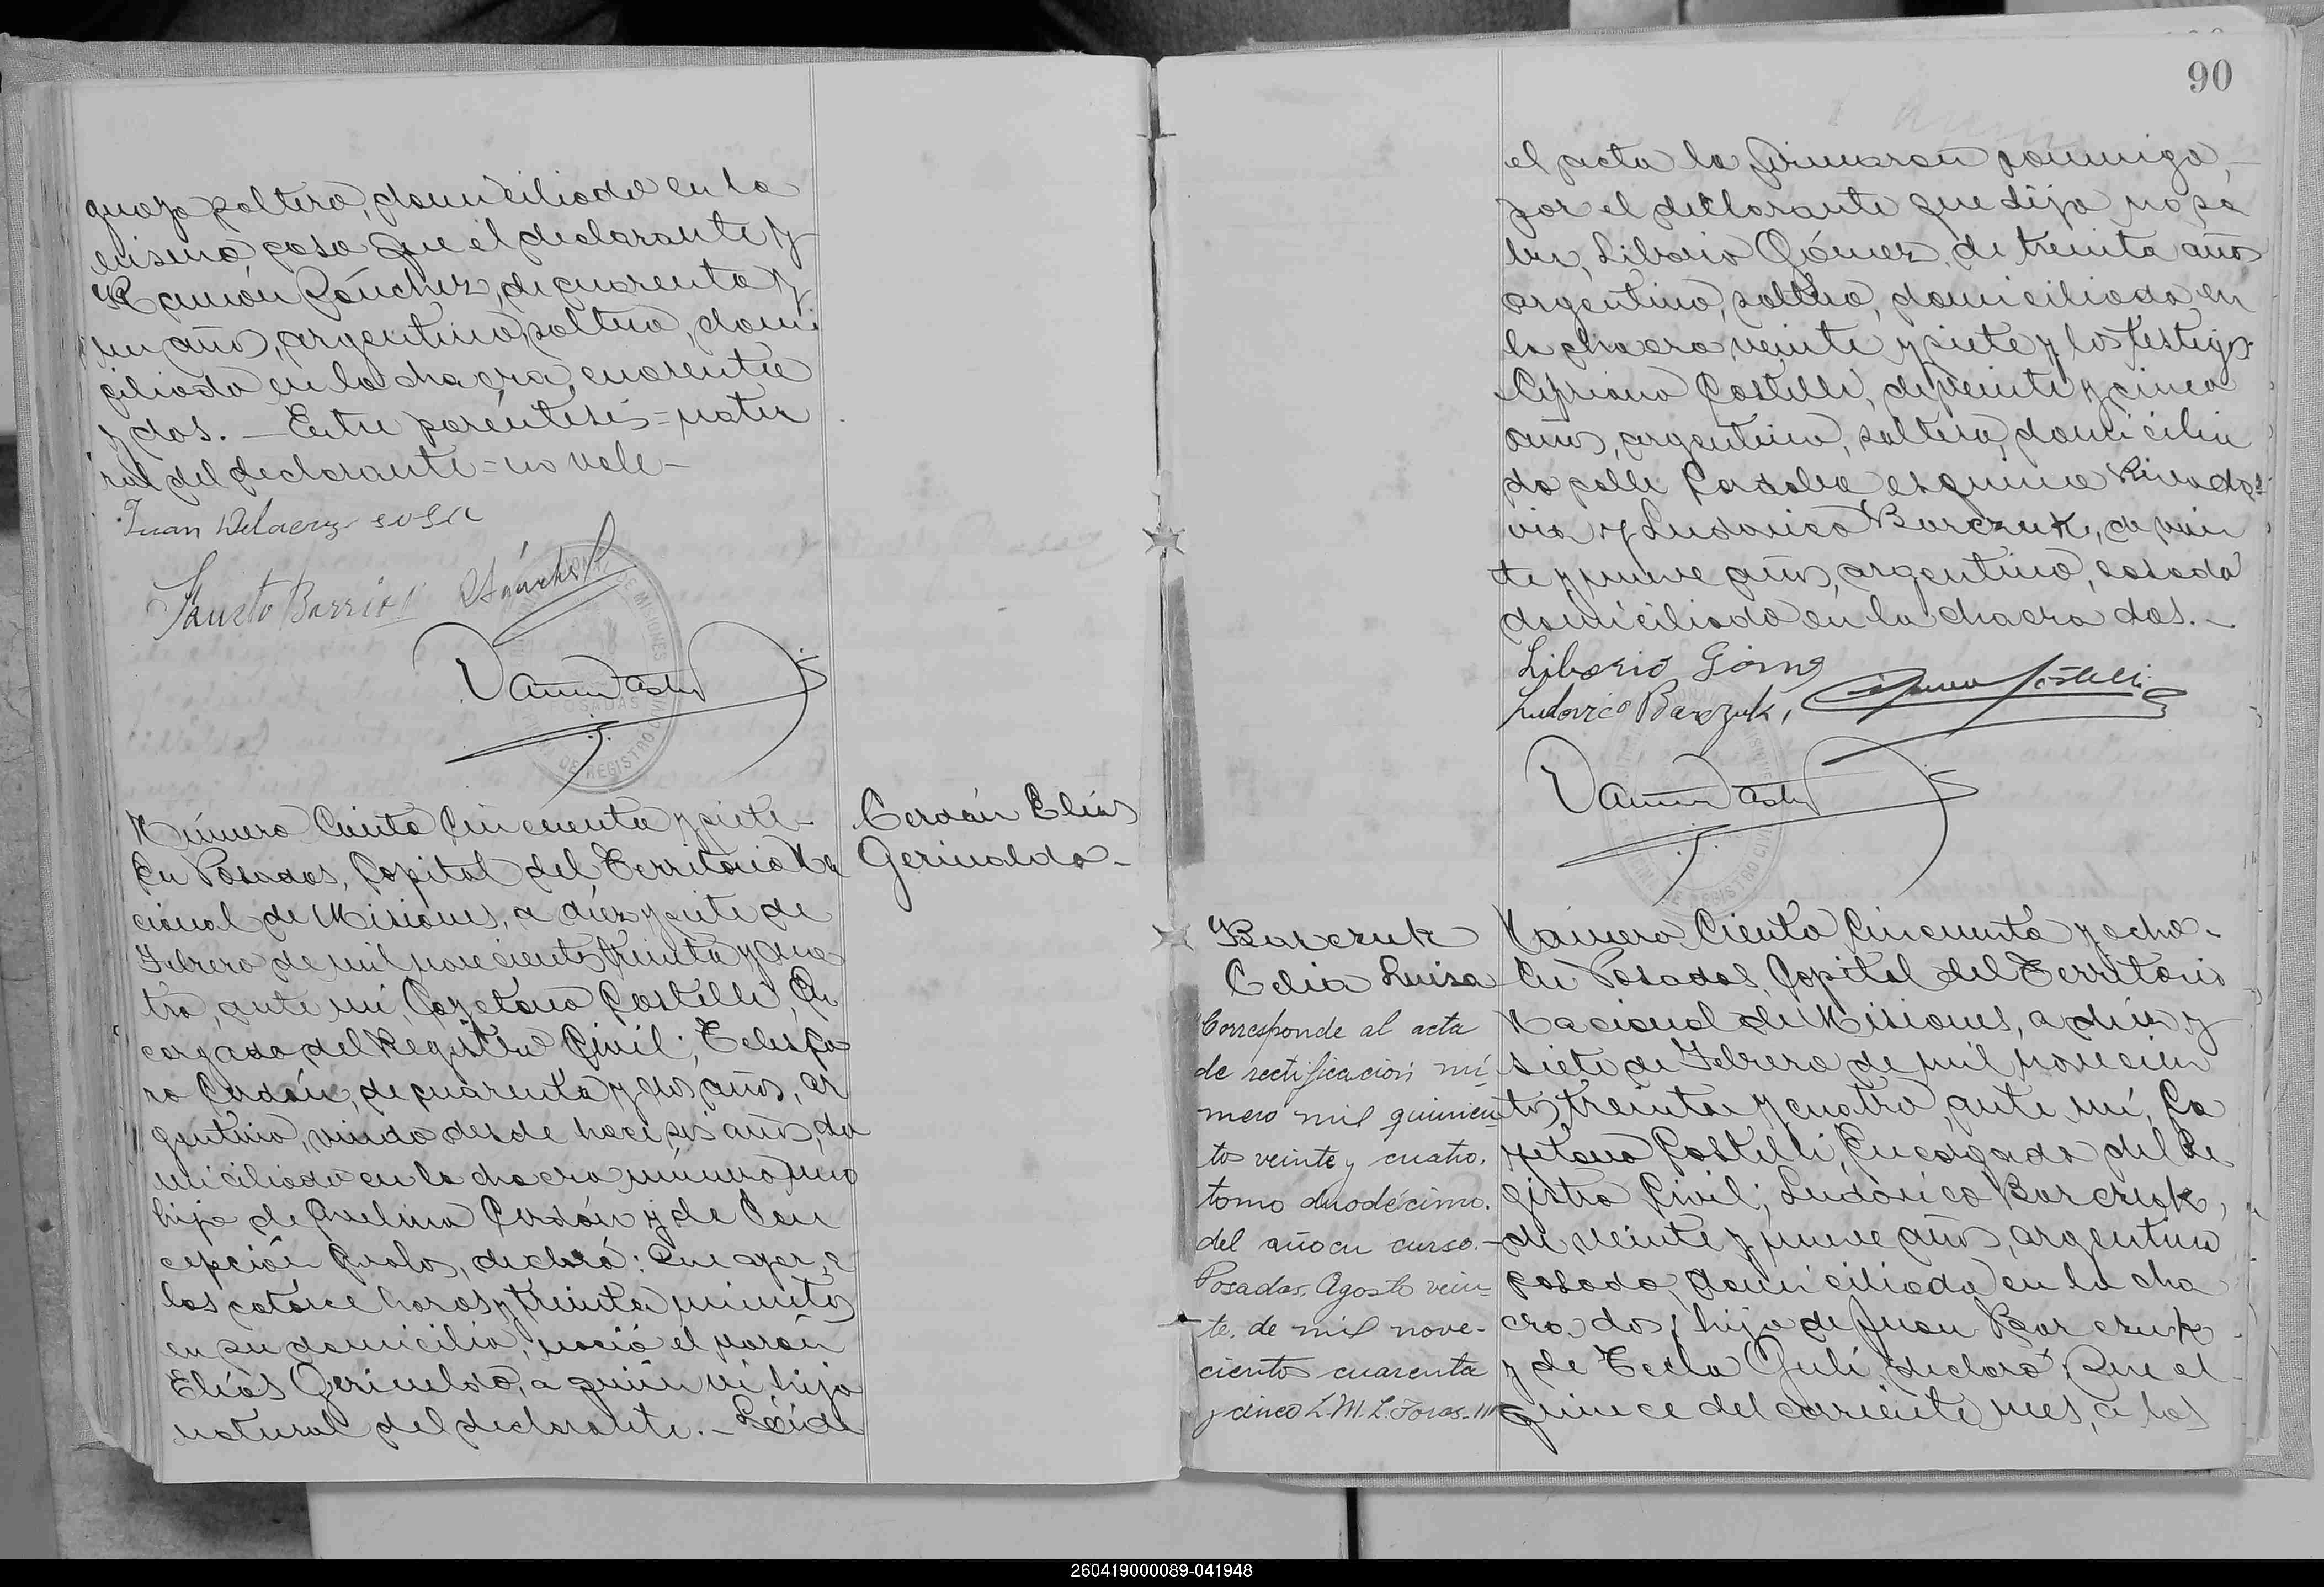 guayo soltero, domiciliado en la
misma casa que el declarante y
Ramón Sánchez, de cuarenta y
un años, argentino, soltero, domi
ciliado en la chacra cuarenta
y dos. — Entre paréntesis = natu
ral del declarante = no vale —
Juan Delacruz sosa
Fausto Barrios RSánchez
POSADAS
DE REGISTRO CIVIL
Número Ciento Cincuenta y siete —
En Posadas, Capital del Territorio Na
cional de Misiones, a diez y siete de
Febrero de mil novecientos treinta y cua
tro, ante mí, Cayetano Castelli, En
cargado del Registro Civil; Telesfo
ro Cerdán, de cuarenta y dos años, ar
gentino, viudo desde hace seis años, do
miciliado en la chacra número uno
hijo de Avelino Cerdán y de Con
cepción, declaró: Que ayer, a
las catorce horas y treinta minutos
en su domicilio, nació el varón
Elías Gerinaldo, a quien vi hijo
natural del declarante. — Leída
Cerdán Elías
Gerinaldo —
90
el acta la firmaron conmigo, —
por el declarante que dijo no sa
ber, Liborio Gómez, de treinta años
argentino, soltero, domiciliado en
la chacra veinte y siete y los testigos
Cipriano Castelli, de veinte y cinco
años, argentino, soltero, domicilia
do calle Cordoba esquina Rivada
via y Ludovico Barczuk, de vein
te y nueve años, argentino, casado
domiciliado en la chacra dos. —
Liborio Gómez
Ludovico Barczuk,
Barczuk
Celia Luisa
Corresponde al acta
de rectificación nú-
mero mil quinien-
tos veinte y cuatro,
tomo duodécimo.
del año en curso. —
Posadas, Agosto vein-
te, de mil nove-
cientos cuarenta
y cinco L.M.L. Foras.
Número Ciento Cincuenta y ocho —
En Posadas, Capital del Territorio
Nacional de Misiones, a diez y
siete de Febrero de mil novecien
tos treinta y cuatro, ante mí, Ca
yetano Castelli, Encargado del Re
gistro Civil; Ludovico Barczuk,
de veinte y nueve años, argentino
casado, domiciliado en la cha
cra dos, hijo de Juan Barczuk
y de Tecla Guli, declaró: Que el
quince del corriente mes, a las
260419000089-041948